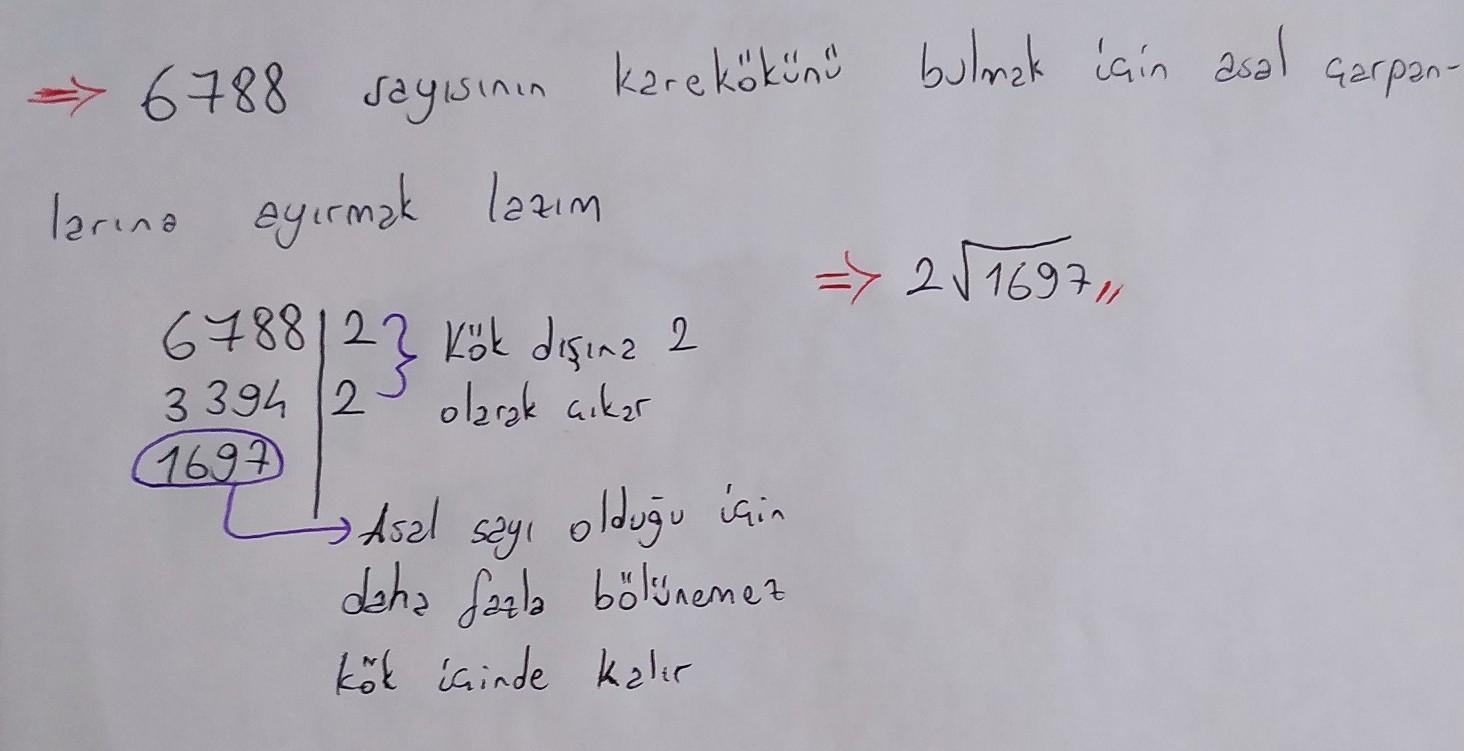 ⇒ 6788 sayısının karekökünü bulmak için asal çarpan-
larına ayırmak lazım
⇒ 2√1697,,
6788 | 2 } Kök dışına 2
3394 | 2 olarak çıkar
1697
→ Asal sayı olduğu için
daha fazla bölünemez
kök içinde kalır